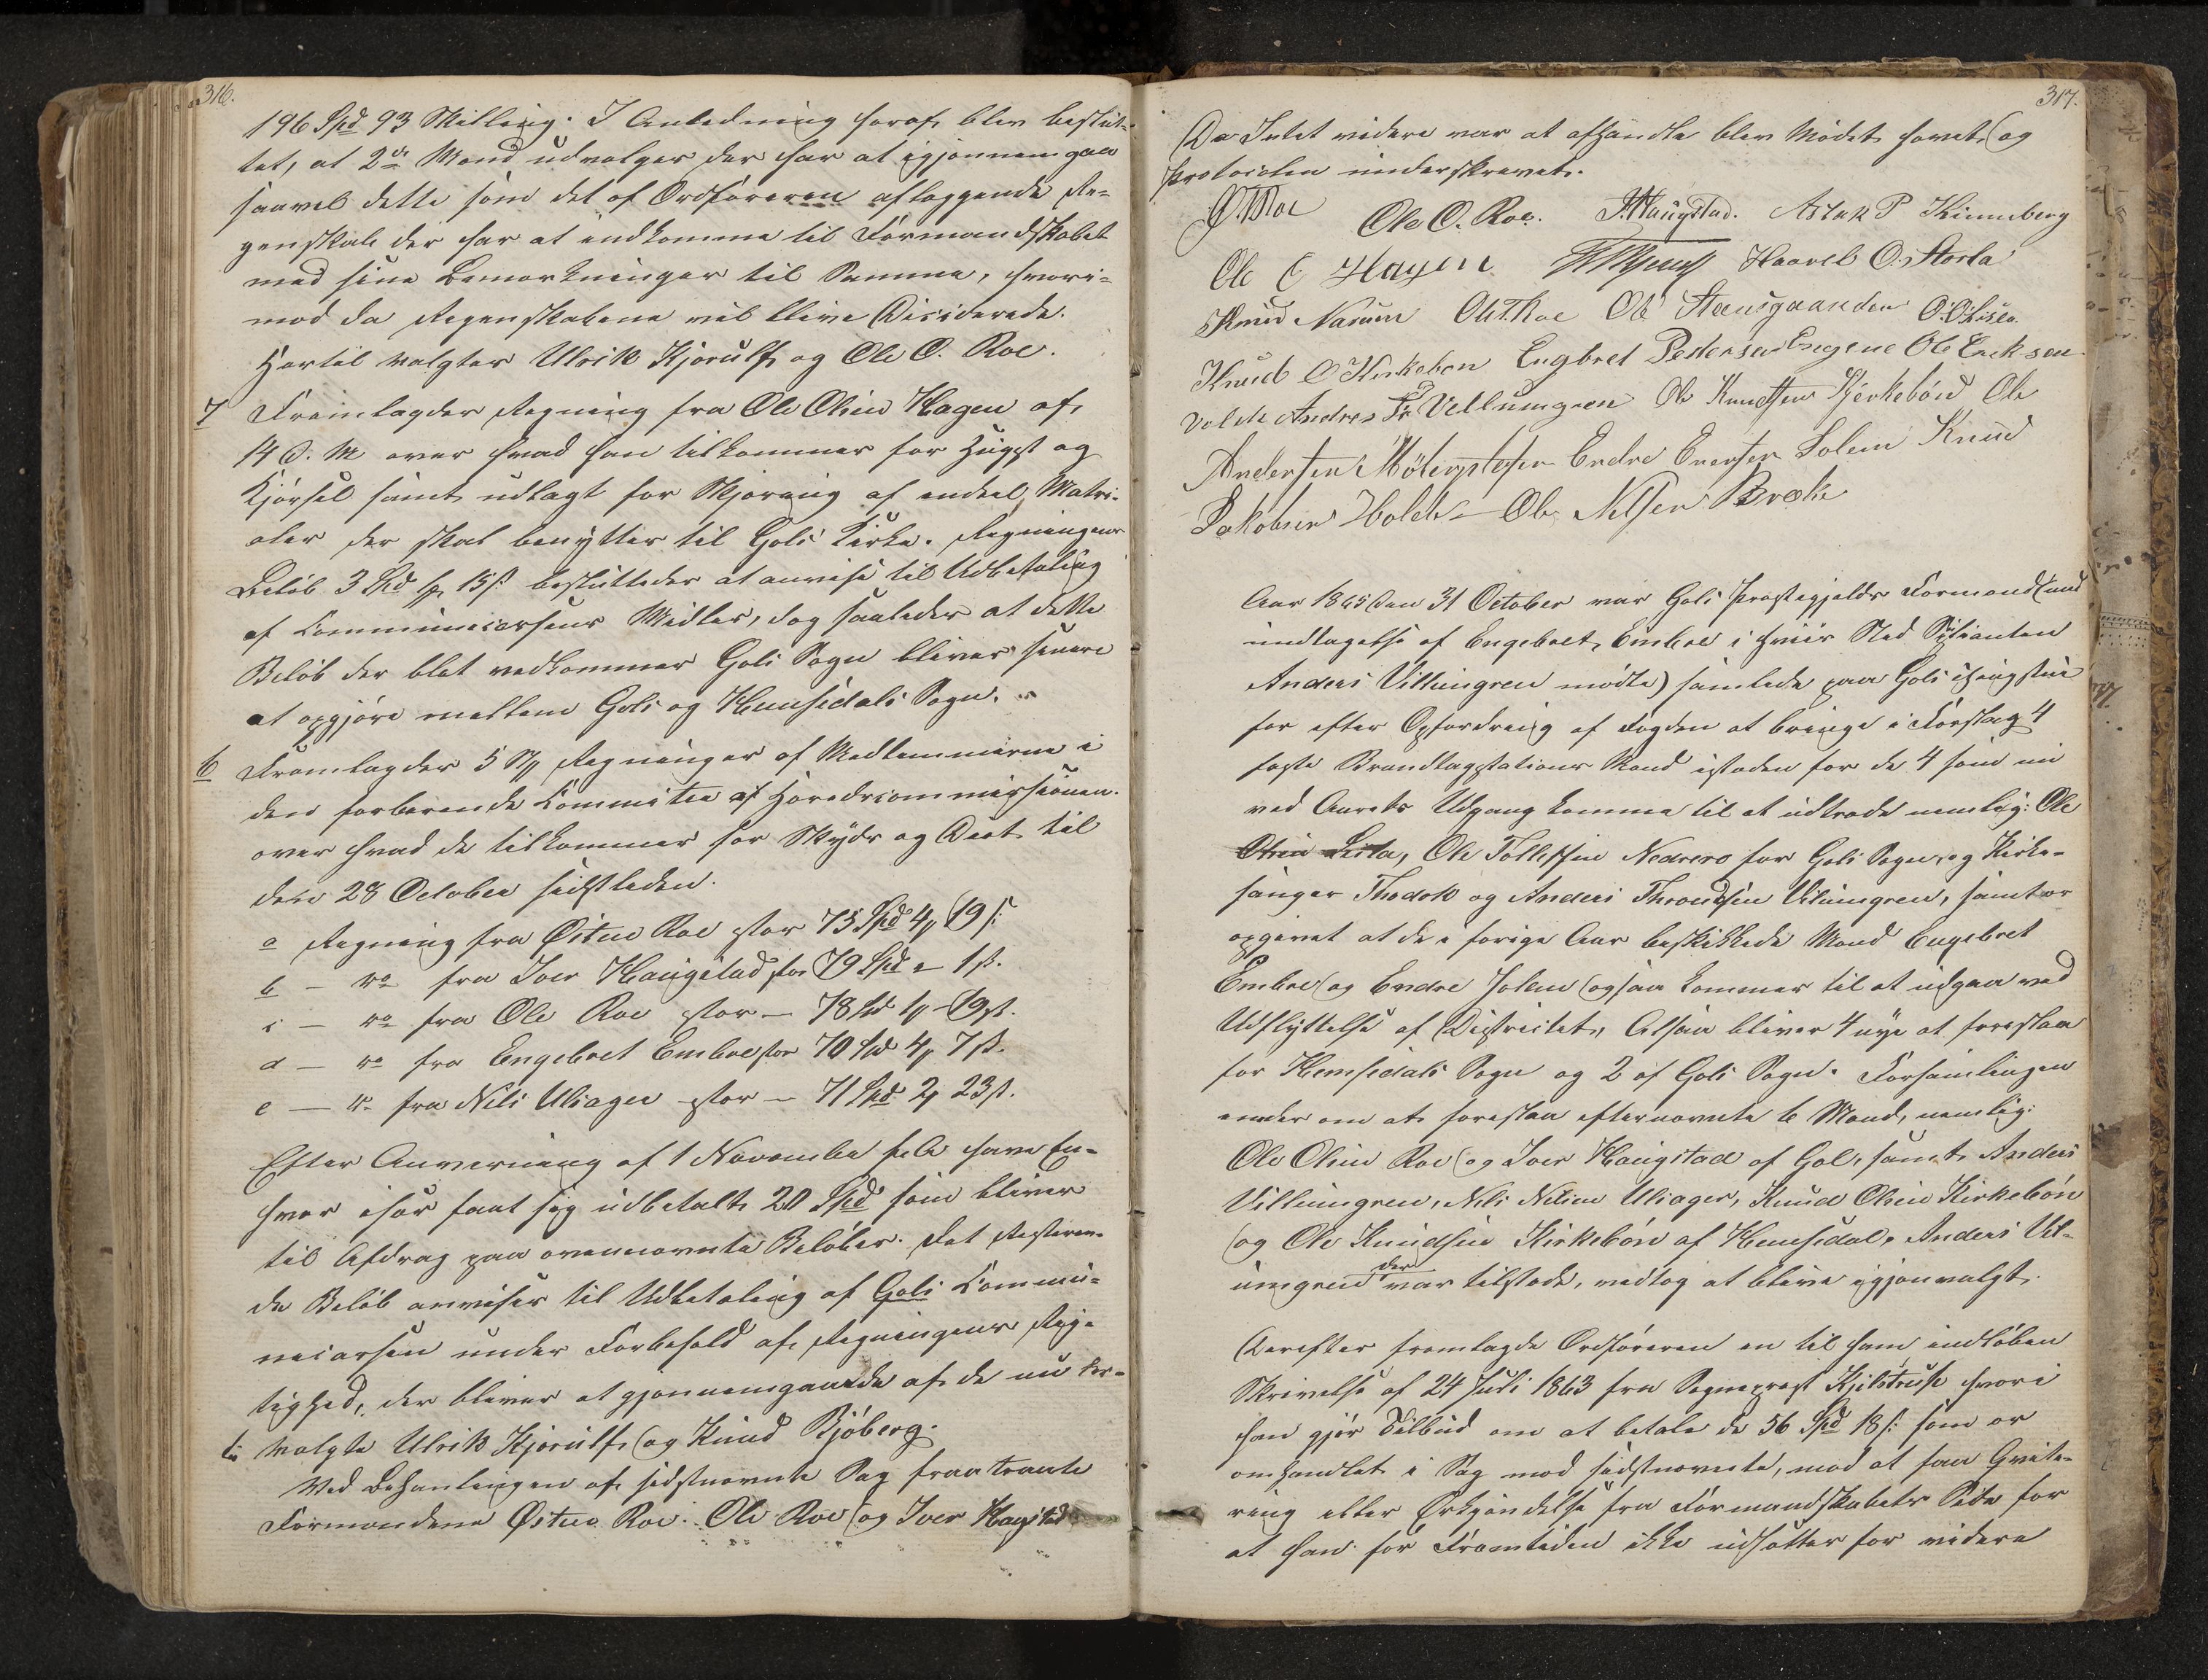 316.
196 Spd 93 Skilling. I Anledning heraf blev beslut-
tet, at 2de Mænd udvælges der har at igjennemgaa
saavel dette som det af Ordføreren aflæggende Re-
genskab der har at indkomme til Formandskabet
med sine Bemærkninger til Samme, hvori-
mod da Regenskabene vil blive Desiderede.
Hertil valgtes Ulrik Kjerulf og Ole O. Roe.
7 Fremlagdes Regning fra Ole Olsen Hagen af
14 d. M over hvad han tilkommer for Hugst og
Kjørsel samt udlagt for Skjæring af endeel Matri-
aler der skal benyttes til Gols Kirke. Regningens
Beløb 3 Spd 15 s besluttedes at anvise til Udbetaling
af Communecassens Midler, dog saaledes at dette
Beløb der blot vedkommer Gols Sogn bliver senere
at opgjøre mellem Gols og Hemsedals Sogn.
6 Fremlagdes 5 Regninger af Medlemmerne i
den forberende Committee af Herredscommissionen
over hvad de tilkommer for Skyds og Diæt til
den 28 October sidstleden.
a Regning fra Østen Roe stor 75 Spd 4 19 s
b – do fra Iver Haugstad stor 79 Spd „ 1 s.
c – do fra Ole Roe stor – 78 Spd 1 19 s.
d – do fra Engebret Embre stor 70 Spd 4 7 s.
e – do fra Nils Uliager stor – 71 Spd 2 23 s.
Efter Anvisning af 1 November have En-
hver især faat sig udbetalt 20 Spd som bliver
til Afdrag paa ovennævnte Beløber. Det Resteren-
de Beløb anvises til Udbetaling af Gols Commu-
necassen under Forbehold af Regningens Rig-
tighed, der bliver at gjennemgaaede af de nu her-
til valgte Ulrik Kjerulf og Knud Bjøberg.
Ved Behanlingen af sidstnævnte Sag fratraadte
Formændene Østen Roe. Ole Roe og Iver Haugstad
317.
Da Intet videre var at afhandle blev Mødet hævet og
Protocolen underskrevet.
Ø. Roe Ole O. Roe. I. Haugstad. Aslak P Kinneberg
Ole O Hagen Haavel O. Storla
Knud Ole T. Roe Ole
Knud O Kirkebøn Engbret Pedersen Ole Ericksen
Andres Tr Vellumgren Ole Knudsen Kjerkebøn Ole
Andersen Endre Enersen Solem Knud
Jakobsen Holde – Ole Nilsen Bræke
Aar 1865 den 31 October var Gols Præstegjelds Formænd (und
undtagelse af Engebret Embre i hvis Sted Suplianten
Anders Villumgren mødte) samlede paa Gols thingstue
for efter Opfordring af Fogden at bringe i Forslag 4
faste Brandtagstations Mænd istæden for de 4 som nu
ved Aarets Udgang komme til at udtræde nemlig: Ole
Olsen Lista, Ole Tollefsen Nedrero for Gols Sogn og Kirke-
sanger Thodok og Anders Throndsen Vilumgren, samt er
opgivet at de i forrige Aar beskikkede Mænd Engebret
Embre og Endre Solem ogsaa kommer til at udgaa ved
Udflyttelse af Districtet, Altsaa bliver 4 nye at foreslaa
for Hemsedals Sogn og 2 af Gols Sogn. Forsamlingen
ender om at foreslaa efternævnte 6 Mænd, nemlig:
Ole Olsen Roe og Iver Haugstad af Gol, samt Anders
Villumgren, Nils Nilsen Uliager, Knud Olsen Kirkebøn
og Ole Knudsen Kirkebøn af Hemsedal. Anders Vil-
umgren der var tilstæde, vedtog at blive igjenvalgt.
Derefter fremlagde Ordføreren en til ham indløben
Skrivelse af 24 Juli 1863 fra Sognepræst Kjelstrup hvori
han gjør Tilbud om at betale de 56 Spd 18 s som er
omhandlet i Sag mod sidstnævnte, mod at faa Qvite-
ring eller Erkjendelse fra Formandskabets Side for
at han for Fremtiden ikke udsættes for videre